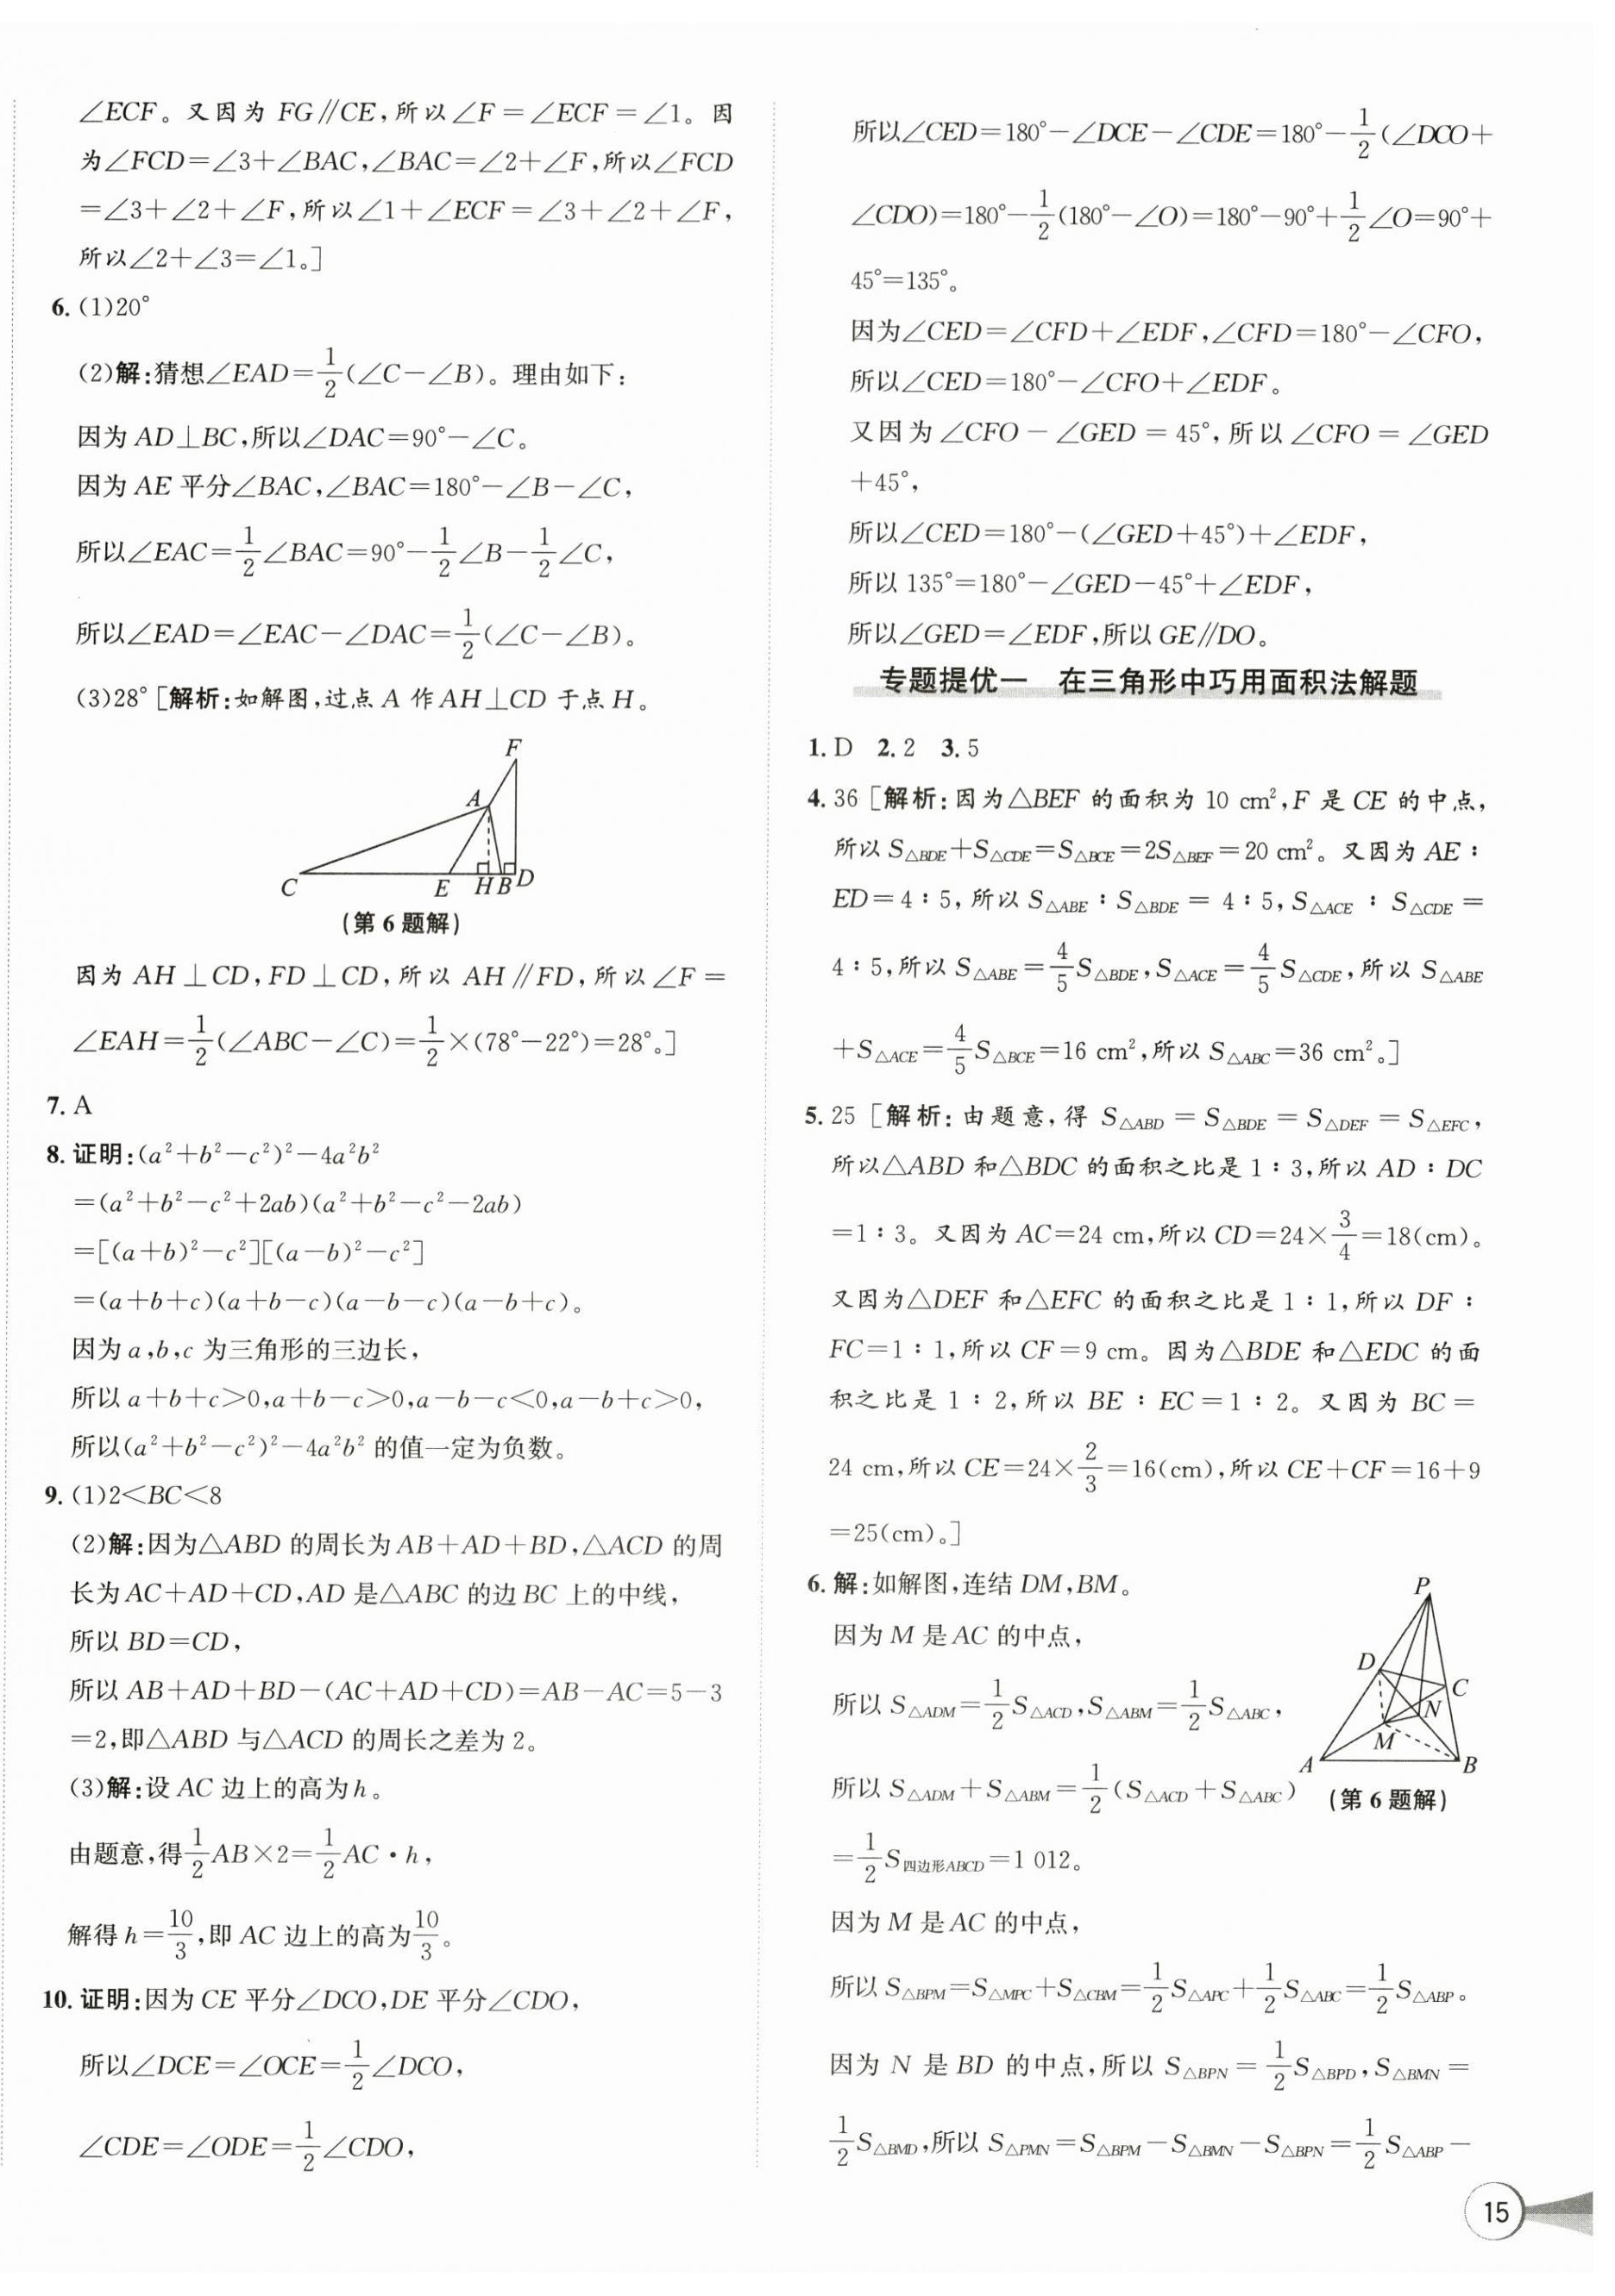 ∠ECF。又因为 FG∥CE,所以∠F=∠ECF=∠1。因
为∠FCD=∠3+∠BAC,∠BAC=∠2+∠F,所以∠FCD
=∠3+∠2+∠F,所以∠1+∠ECF=∠3+∠2+∠F,
所以∠2+∠3=∠1。]
6. (1)20°
(2)解:猜想∠EAD=1/2(∠C-∠B)。理由如下:
因为 AD⊥BC,所以∠DAC=90°-∠C。
因为 AE 平分∠BAC,∠BAC=180°-∠B-∠C,
所以∠EAC=1/2∠BAC=90°-1/2∠B-1/2∠C,
所以∠EAD=∠EAC-∠DAC=1/2(∠C-∠B)。
(3)28° [解析:如解图,过点 A 作 AH⊥CD 于点 H。
F
A
C E H B D
(第 6 题解)
因为 AH⊥CD,FD⊥CD,所以 AH∥FD,所以∠F=
∠EAH=1/2(∠ABC-∠C)=1/2×(78°-22°)=28°。]
7. A
8. 证明:(a²+b²-c²)²-4a²b²
=(a²+b²-c²+2ab)(a²+b²-c²-2ab)
=[(a+b)²-c²][(a-b)²-c²]
=(a+b+c)(a+b-c)(a-b-c)(a-b+c)。
因为 a,b,c 为三角形的三边长,
所以 a+b+c>0,a+b-c>0,a-b-c<0,a-b+c>0,
所以(a²+b²-c²)²-4a²b² 的值一定为负数。
9. (1)2<BC<8
(2)解:因为△ABD 的周长为 AB+AD+BD,△ACD 的周
长为 AC+AD+CD,AD 是△ABC 的边 BC 上的中线,
所以 BD=CD,
所以 AB+AD+BD-(AC+AD+CD)=AB-AC=5-3
=2,即△ABD 与△ACD 的周长之差为 2。
(3)解:设 AC 边上的高为 h。
由题意,得1/2AB×2=1/2AC·h,
解得 h=10/3,即 AC 边上的高为10/3。
10. 证明:因为 CE 平分∠DCO,DE 平分∠CDO,
所以∠DCE=∠OCE=1/2∠DCO,
∠CDE=∠ODE=1/2∠CDO,
所以∠CED=180°-∠DCE-∠CDE=180°-1/2(∠DCO+
∠CDO)=180°-1/2(180°-∠O)=180°-90°+1/2∠O=90°+
45°=135°。
因为∠CED=∠CFD+∠EDF,∠CFD=180°-∠CFO,
所以∠CED=180°-∠CFO+∠EDF。
又因为∠CFO-∠GED=45°,所以∠CFO=∠GED
+45°,
所以∠CED=180°-(∠GED+45°)+∠EDF,
所以 135°=180°-∠GED-45°+∠EDF,
所以∠GED=∠EDF,所以 GE∥DO。
专题提优一 在三角形中巧用面积法解题
1. D 2. 2 3. 5
4. 36 [解析:因为△BEF 的面积为 10 cm²,F 是 CE 的中点,
所以 S△BDE+S△CDE=S△BCE=2S△BEF=20 cm²。又因为 AE∶
ED=4∶5,所以 S△ABE∶S△BDE=4∶5,S△ACE∶S△CDE=
4∶5,所以 S△ABE=4/5S△BDE,S△ACE=4/5S△CDE,所以 S△ABE
+S△ACE=4/5S△BCE=16 cm²,所以 S△ABC=36 cm²。]
5. 25 [解析:由题意,得 S△ABD=S△BDE=S△DEF=S△EFC,
所以△ABD 和△BDC 的面积之比是 1∶3,所以 AD∶DC
=1∶3。又因为 AC=24 cm,所以 CD=24×3/4=18(cm)。
又因为△DEF 和△EFC 的面积之比是 1∶1,所以 DF∶
FC=1∶1,所以 CF=9 cm。因为△BDE 和△EDC 的面
积之比是 1∶2,所以 BE∶EC=1∶2。又因为 BC=
24 cm,所以 CE=24×2/3=16(cm),所以 CE+CF=16+9
=25(cm)。]
6. 解:如解图,连结 DM,BM。
因为 M 是 AC 的中点,
所以 S△ADM=1/2S△ACD,S△ABM=1/2S△ABC,
所以 S△ADM+S△ABM=1/2(S△ACD+S△ABC)
=1/2S四边形ABCD=1 012。
P
D
C
N
M
A B
(第 6 题解)
因为 M 是 AC 的中点,
所以 S△BPM=S△MPC+S△CBM=1/2S△APC+1/2S△ABC=1/2S△ABP。
因为 N 是 BD 的中点,所以 S△BPN=1/2S△BPD,S△BMN=
1/2S△BMD,所以 S△PMN=S△BPM-S△BMN-S△BPN=1/2S△ABP-
15